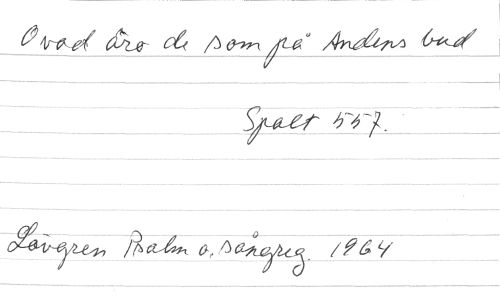 O vad äro de som på Andens bud
Spalt 557.
Lövgren Psalm o. sångreg. 1964